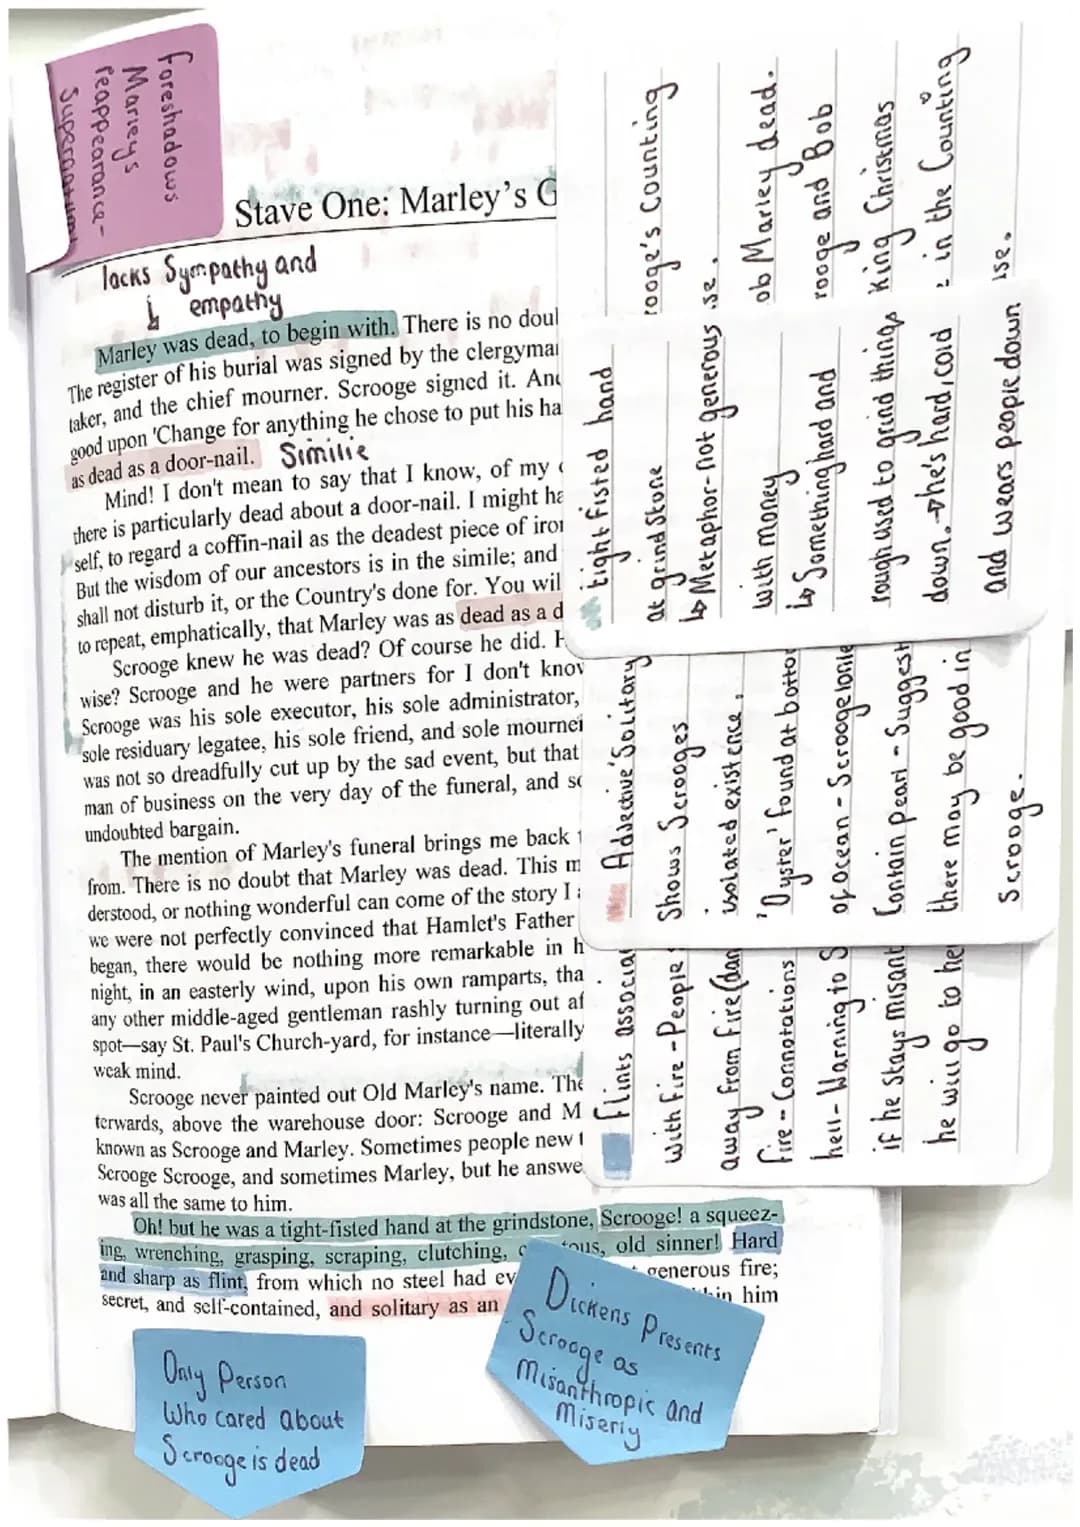 foreshadows
Marley's
reappearance-
Stave One: Marley's G
lacks Sympathy and
↓ empathy
Marley was dead, to begin with. There is no doul
The register of his burial was signed by the clergymai
taker, and the chief mourner. Scrooge signed it. And
good upon 'Change for anything he chose to put his ha
as dead as a door-nail. Similie
Mind! I don't mean to say that I know, of my
there is particularly dead about a door-nail. I might ha
self, to regard a coffin-nail as the deadest piece of iron
But the wisdom of our ancestors is in the simile; and
shall not disturb it, or the Country's done for. You wil
to repeat, emphatically, that Marley was as dead as a d
Scrooge knew he was dead? Of course he did. H
wise? Scrooge and he were partners for I don't know
Scrooge was his sole executor, his sole administrator,
sole residuary legatee, his sole friend, and sole mourner
was not so dreadfully cut up by the sad event, but that
man of business on the very day of the funeral, and so
undoubted bargain.
The mention of Marley's funeral brings me back t
from. There is no doubt that Marley was dead. This m
derstood, or nothing wonderful can come of the story I a
we were not perfectly convinced that Hamlet's Father
began, there would be nothing more remarkable in h
night, in an easterly wind, upon his own ramparts, tha
any other middle-aged gentleman rashly turning out af
spot—say St. Paul's Church-yard, for instance—literally
weak mind.
Scrooge never painted out Old Marley's name. The
terwards, above the warehouse door: Scrooge and M
known as Scrooge and Marley. Sometimes people new t
Scrooge Scrooge, and sometimes Marley, but he answe
was all the same to him.
Oh! but he was a tight-fisted hand at the grindstone, Scrooge! a squeez-
ing, wrenching, grasping, scraping, clutching, c tous, old sinner! Hard
and sharp as flint, from which no steel had ev generous fire;
secret, and self-contained, and solitary as an hin him
Only Person
Who cared about
Scrooge is dead
Dickens Presents
Scrooge as
Misanthropic and
Miserly
rooge's Counting
se.
ob Marley dead.
rooge and Bob
King Christmas
in the Counting
ise.
tight fisted hand
at grind stone
↳ Metaphor-not generous
with money
↳ Something hard and
rough used to grind things
down. → he's hard, cold
and wears people down
Adjective 'Solitary
Shows Scrooges
isolated existence.
'Oyster' found at botto
of ocean - Scrooge lonle
Contain pearl - Suggest
there may be good in
Scrooge.
Flints associat
with Fire - People
away from Fire (dan
fire - Connotations
hell - Warning to S
if he stays misant
he will go to hel